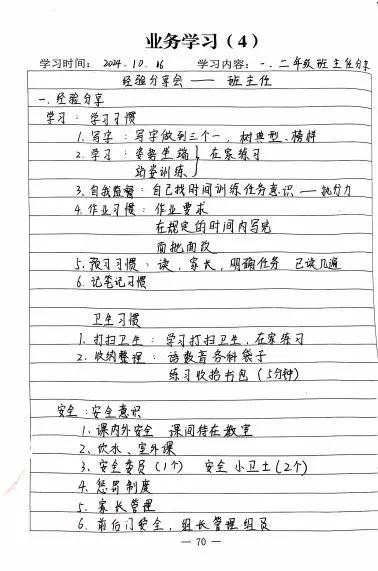 业务学习（4）
学习时间： 2024.10.16 学习内容：一、二年级班主任分享
经验分享会 —— 班主任
一、经验分享
学习：学习习惯
1. 写字：写字做到三个一，树典型、榜样
2. 学习：姿势坐端 } 在家练习
训练
3. 自我监督：自己找时间训练任务意识 —
4. 作业习惯：作业要求
在规定的时间内写完
面批面改
5. 预习习惯：读、家长，明确任务 已读几遍
6. 记笔记习惯
卫生习惯
1. 打扫卫生：学习打扫卫生，在家练习
2. 收纳整理：语数音各科袋子
练习收拾书包（5分钟）
安全：安全意识
1. 课内外安全 课间待在教室
2. 饮水、室外课
3. 安全委员（1个） 安全小卫士（2个）
4. 惩罚制度
5. 家长管理
6. 前后门安全，组长管理组员
— 70 —